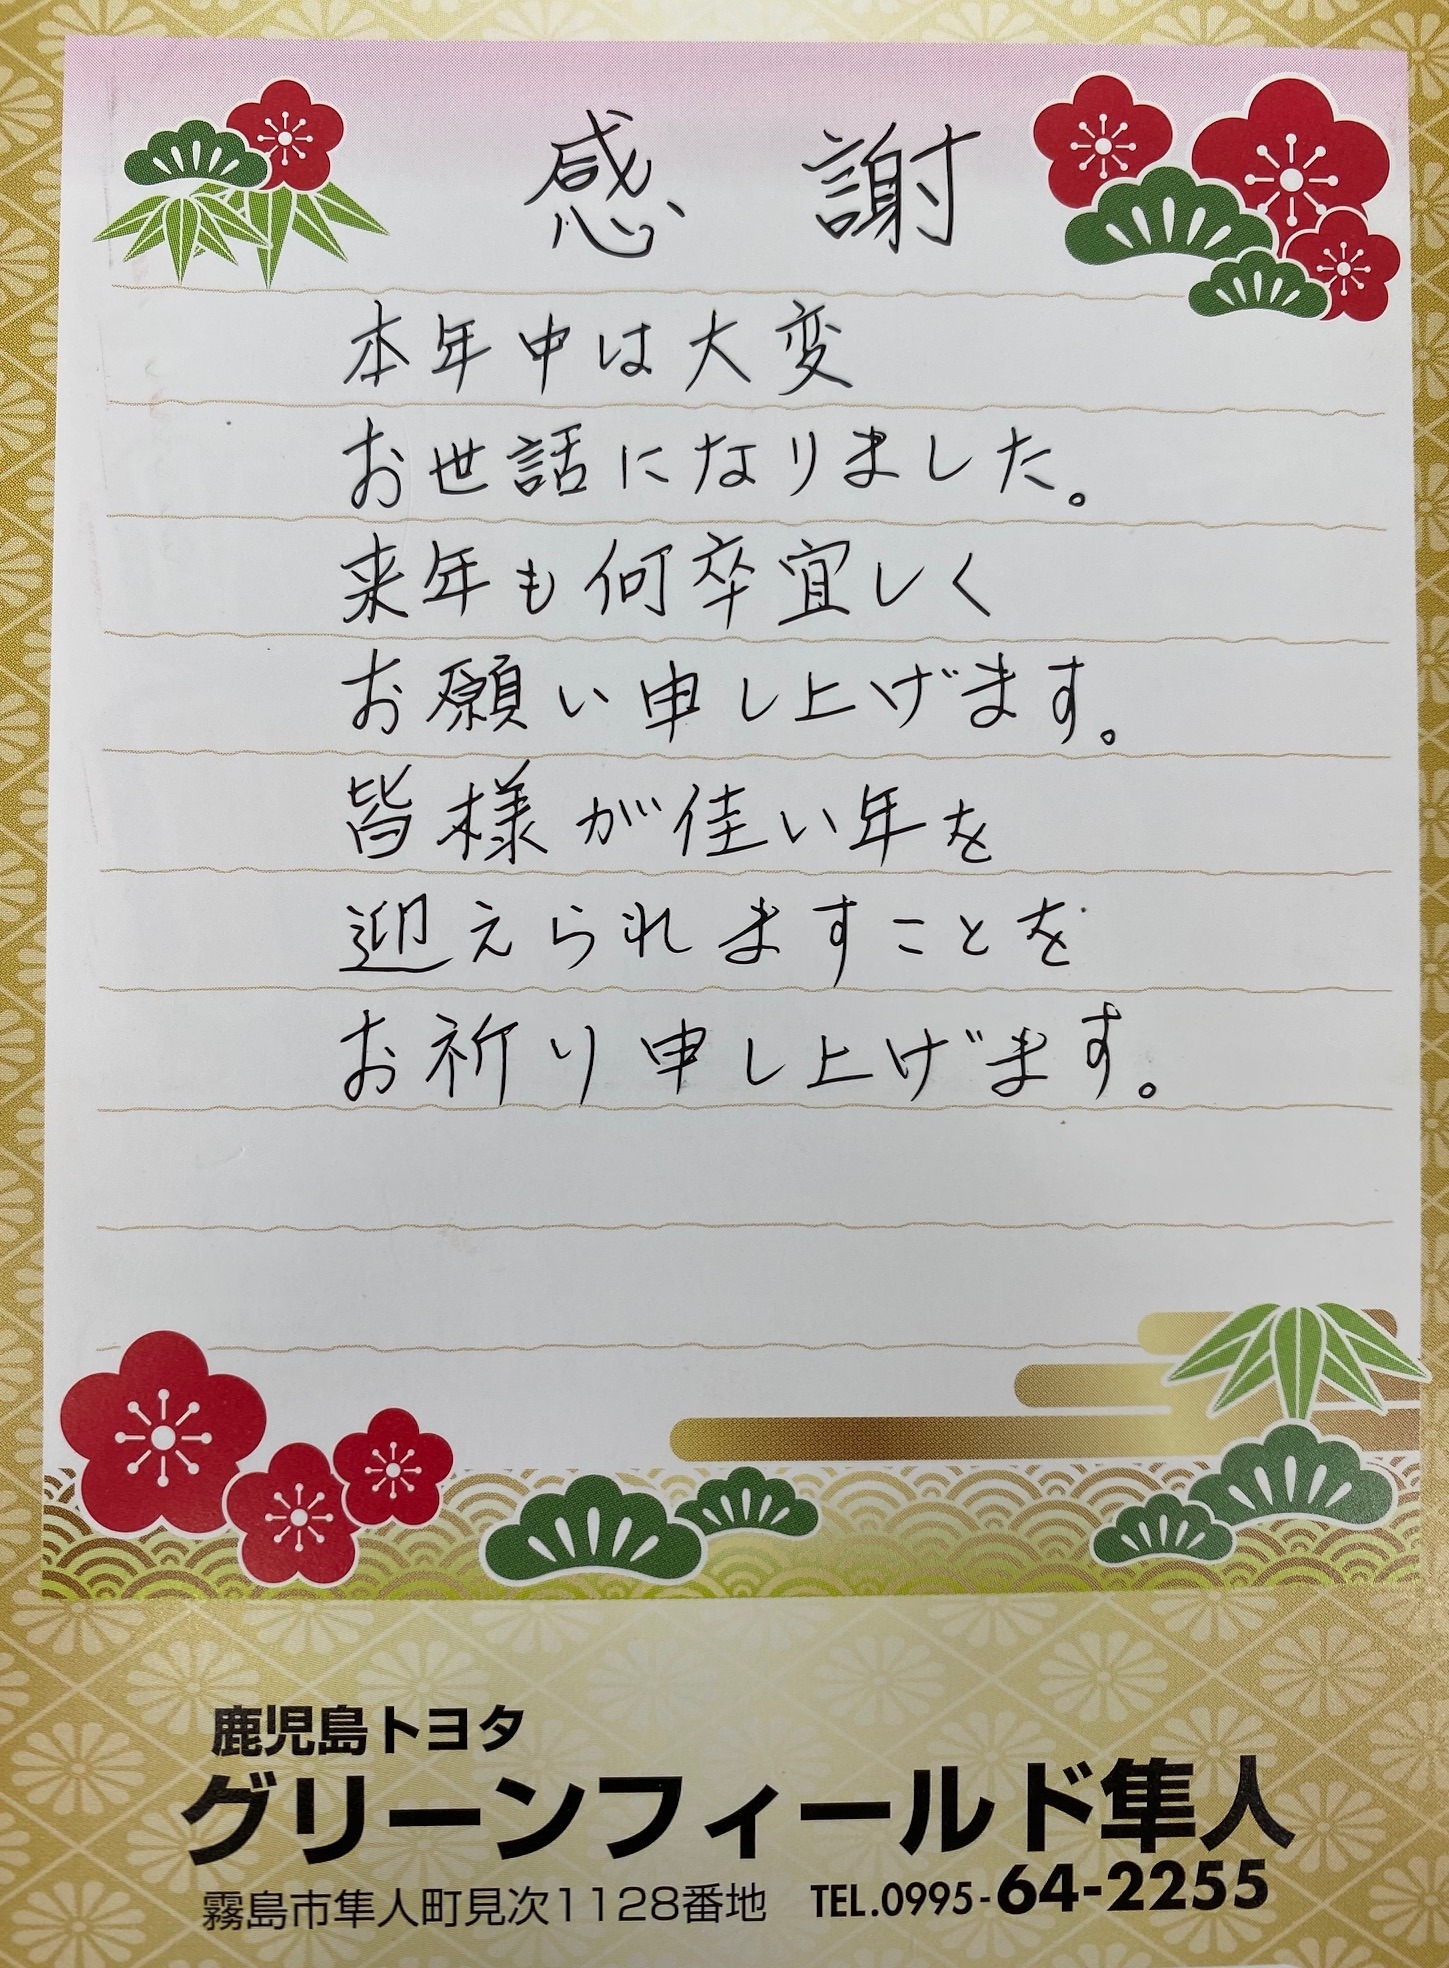 感謝
本年中は大変
お世話になりました。
来年も何卒宜しく
お願い申し上げます。
皆様が佳い年を
迎えられますことを
お祈り申し上げます。
鹿児島トヨタ
グリーンフィールド隼人
霧島市隼人町見次1128番地 TEL.0995-64-2255